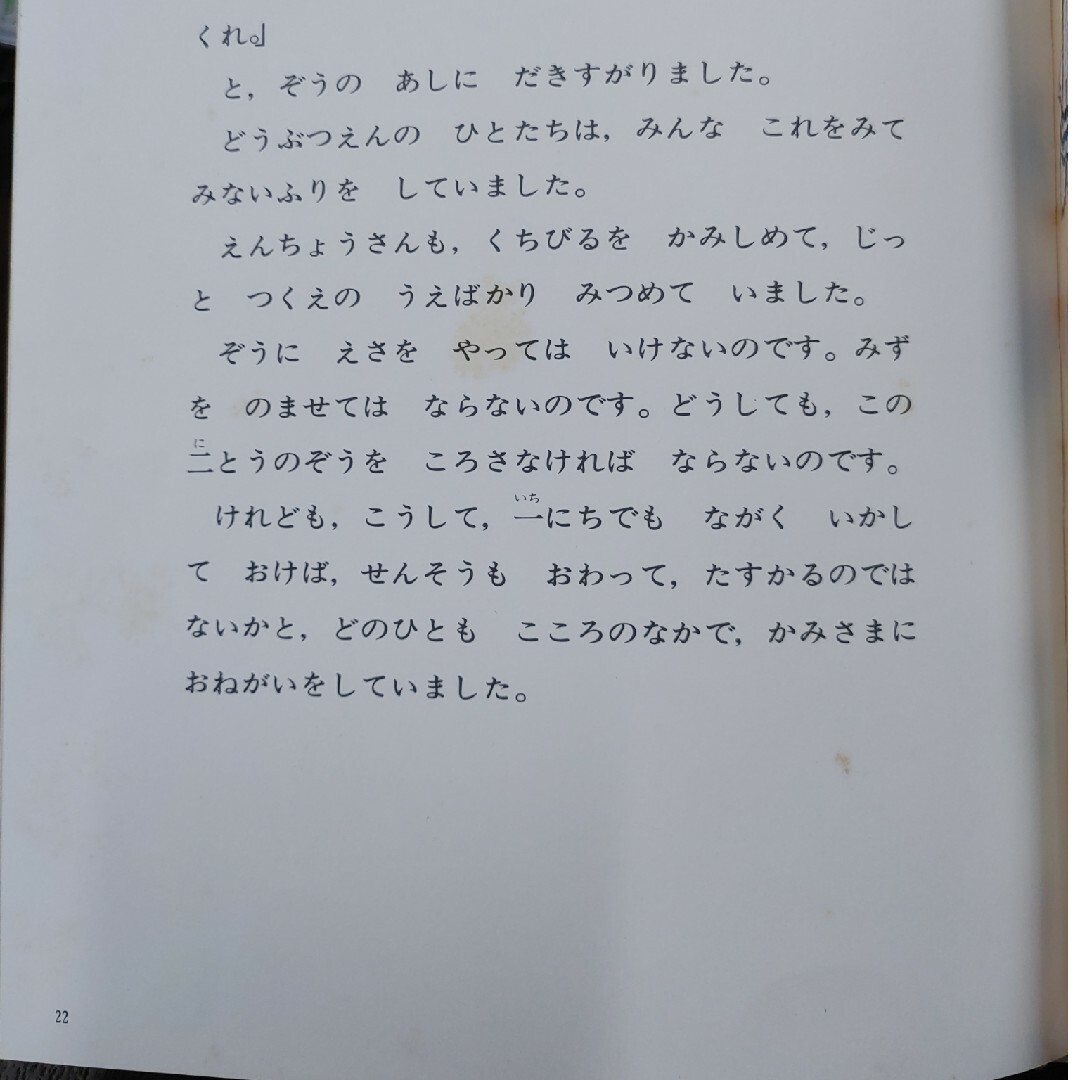 くれ。」
と，ぞうの　あしに　だきすがりました。
どうぶつえんの　ひとたちは，みんな　これをみて
みないふりを　していました。
えんちょうさんも，くちびるを　かみしめて，じっ
と　つくえの　うえばかり　みつめて　いました。
ぞうに　えさを　やっては　いけないのです。みず
を　のませては　ならないのです。どうしても，この
に
二とうのぞうを　ころさなければ　ならないのです。
いち
けれども，こうして，一にちでも　ながく　いかし
て　おけば，せんそうも　おわって，たすかるのでは
ないかと，どのひとも　こころのなかで，かみさまに
おねがいをしていました。
22